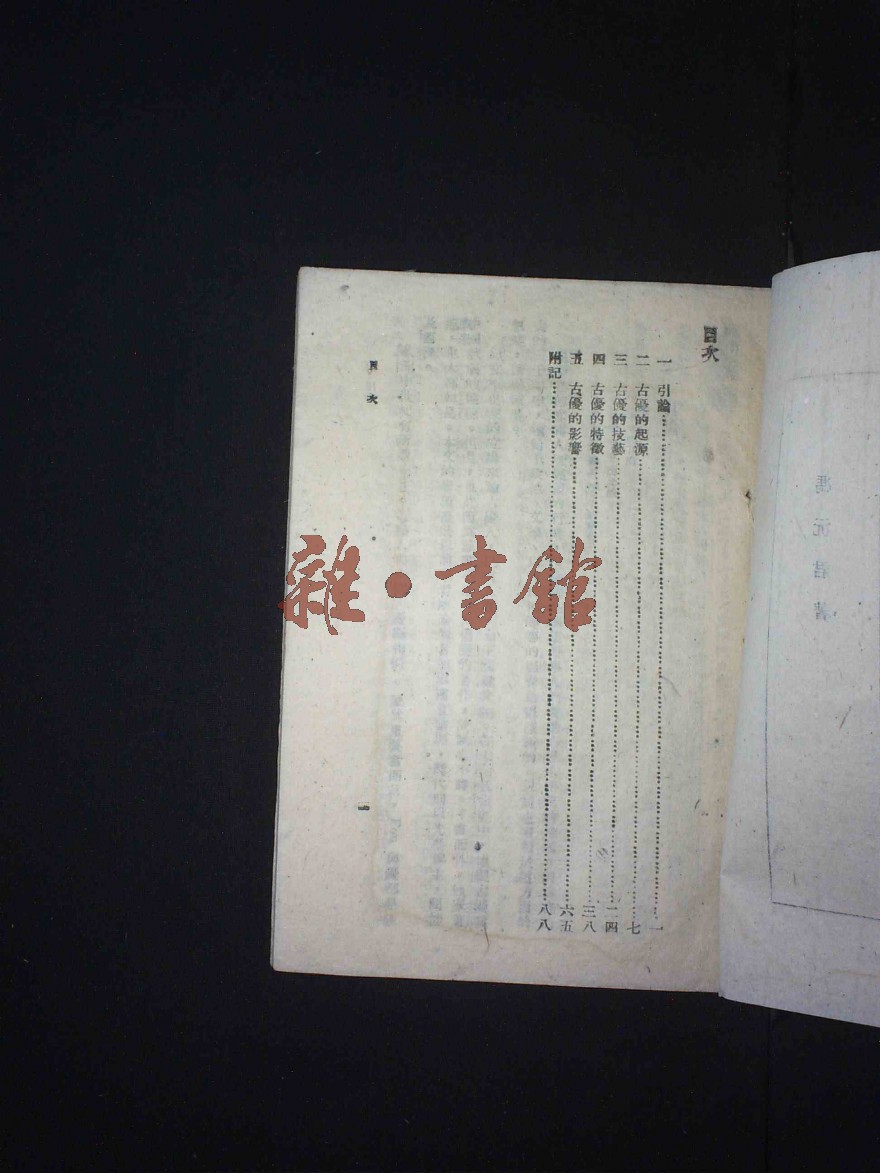 馮沅君著
目次
一 引論……一
二 古優的起源……七
三 古優的技藝……二四
四 古優的特徵……三八
五 古優的影響……六五
附記……八八
目次
一
雜·書館